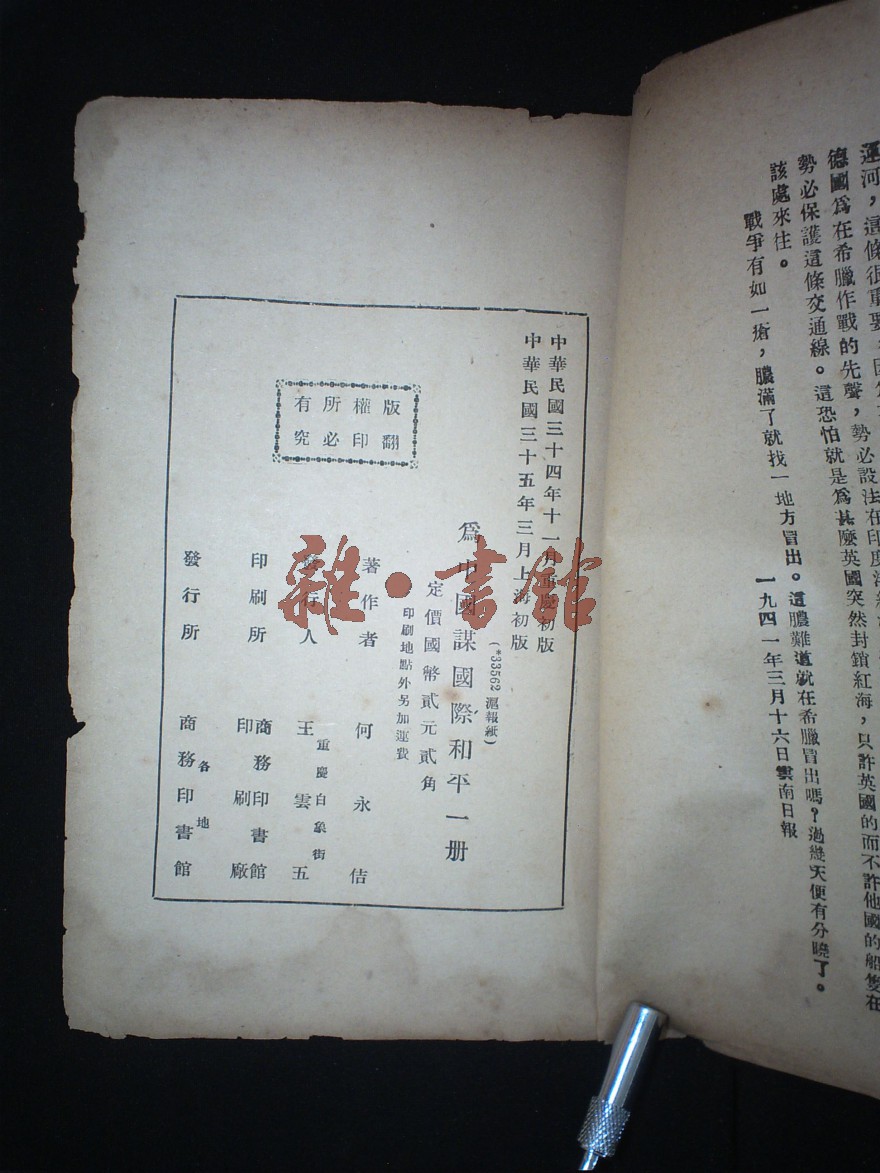 德國為在希臘作戰的先聲，勢必設法在印度洋
勢必保護這條交通線。這恐怕就是為甚麼英國突然封鎖紅海，只許英國的而不許他國的船隻在
該處來往。
戰爭有如一瘡，膿滿了就找一地方冒出。這膿難道就在希臘冒出嗎？過幾天便有分曉了。
一九四一年三月十六日雲南日報
中華民國三十四年十一月重慶初版
中華民國三十五年三月上海初版
(*33562 滬報紙)
為中國謀國際和平一册
定價國幣貳元貳角
印刷地點外另加運費
著作者 何永佶
重慶白象街
發行人 王雲五
印刷所 商務印書館
印刷廠
發行所 各地
商務印書館
版權所有
翻印必究
雜·書館